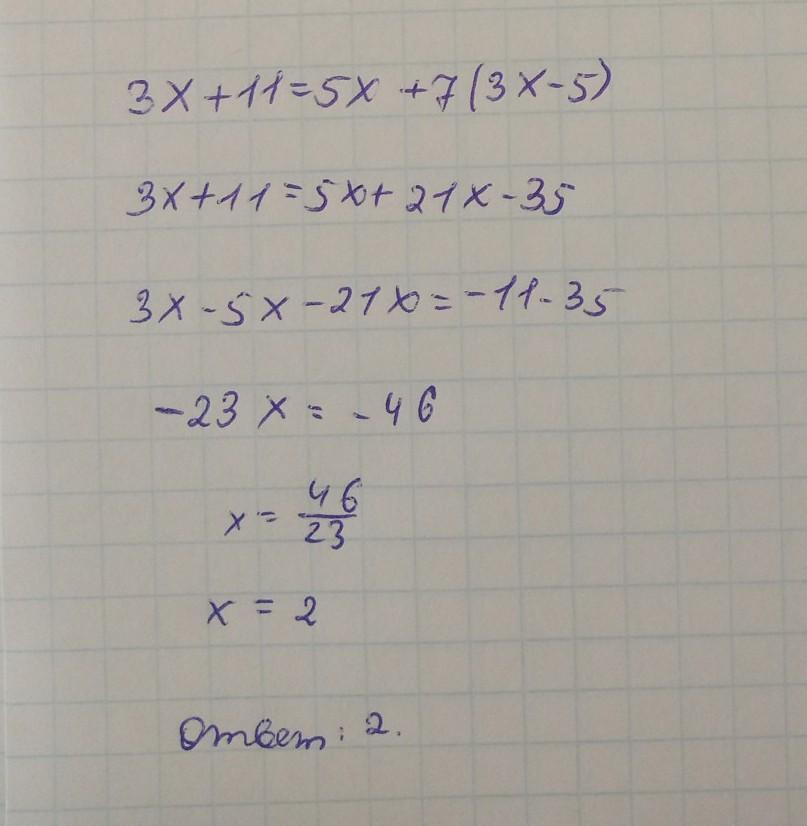 3x+11=5x+7(3x-5)
3x+11=5x+21x-35
3x-5x-21x=-11-35
-23x=-46
x=46/23
x=2
Ответ: 2.